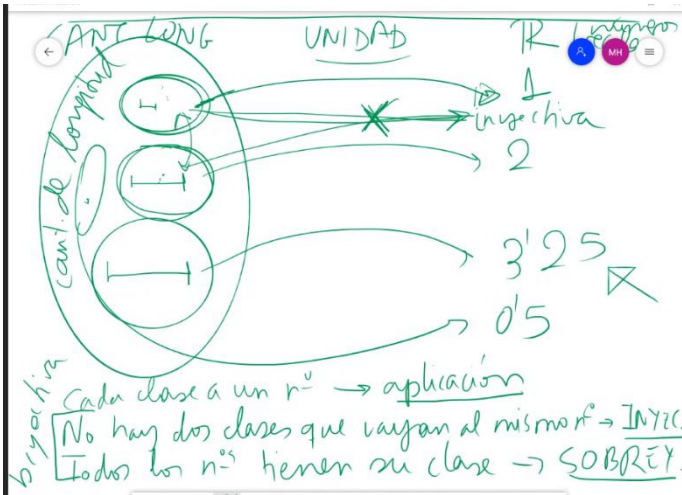 CANT LONG UNIDAD R
MH
cant. de longitud
1
inyectiva
2
3'25
0'5
biyectiva
Cada clase a un nº → aplicación
No hay dos clases que vayan al mismo nº → INYEC.
Todos los nºs tienen su clase → SOBREY.